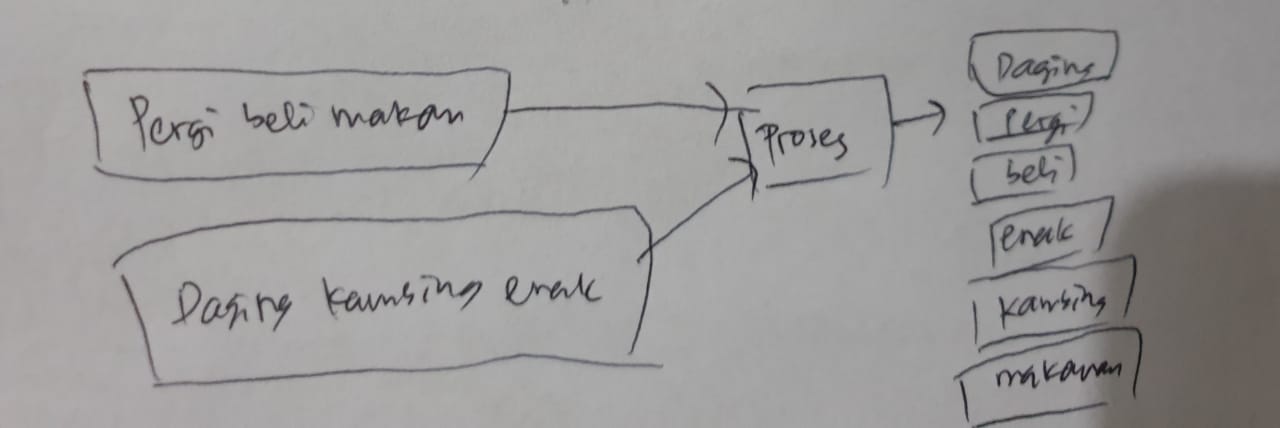 Pergi beli makan
Daging kambing enak
Proses
Daging
Pergi
beli
enak
kambing
makanan